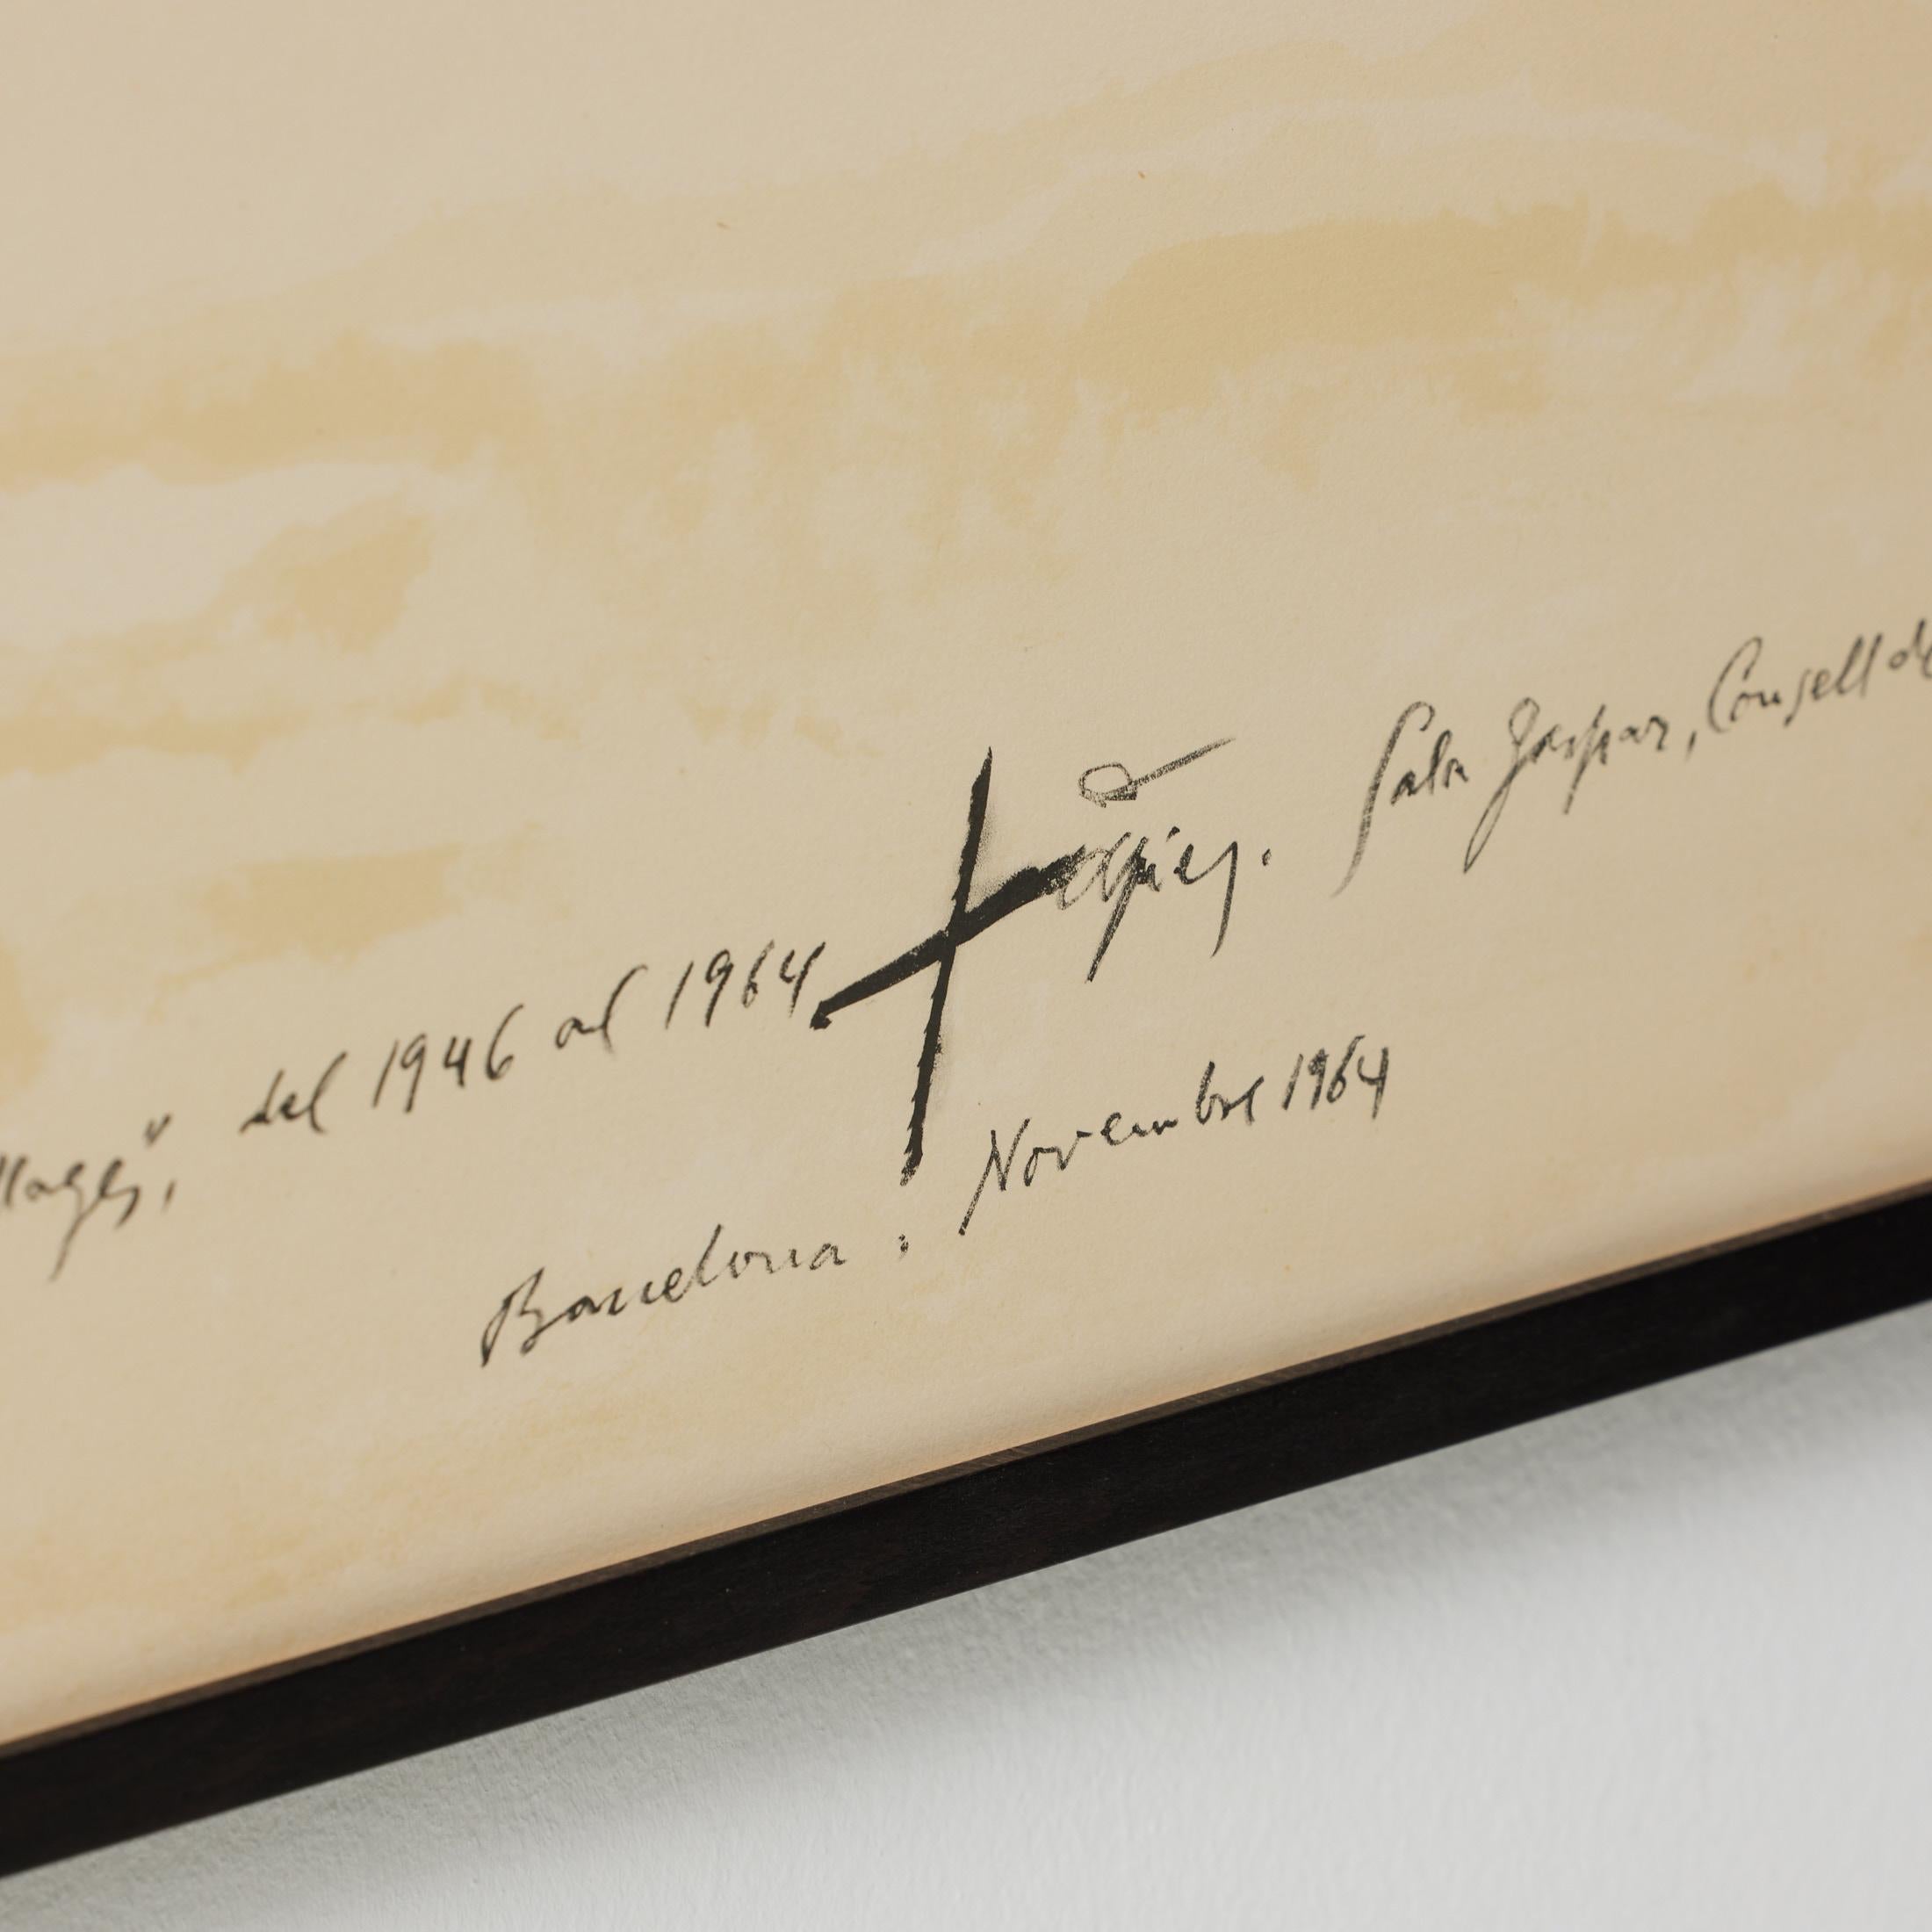 llages", del 1946 al 1964 Tàpies. Sala Gaspar, Consell de
Barcelona. Novembre 1964